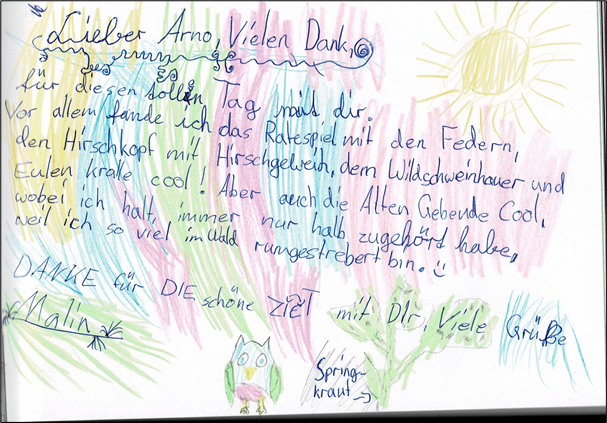 Lieber Arno, Vielen Dank,
für diesen tollen Tag mit dir.
Vor allem fande ich das Ratespiel mit den Federn,
den Hirschkopf mit Hirschgeweih, dem Wildschweinhauer und
Eulen kralle cool! Aber auch die Alten Gebende Cool,
wobei ich halt, immer nur halb zugehört habe,
weil ich so viel im Wald rumgestrebert bin.
DANKE für DIE schöne ZIET mit DIr, Viele Grüße
Malin
Spring-
kraut